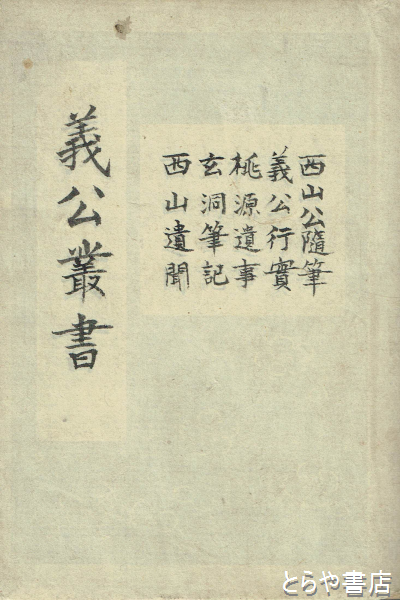 西山公隨筆
義公行實
桃源遺事
玄洞筆記
西山遺聞
義公叢書
とらや書店